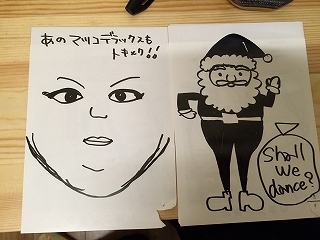 あの マツコデラックスも
トキメク!!
Shall
we
dance?